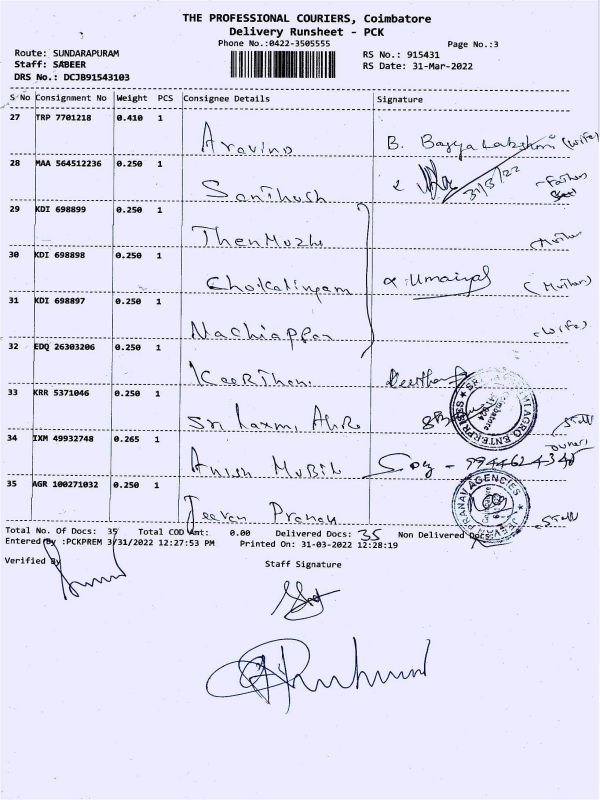 THE PROFESSIONAL COURIERS, Coimbatore
Delivery Runsheet - PCK
Phone No.:0422-3505555
Page No.:3
Route: SUNDARAPURAM
RS No.: 915431
Staff: SABEER
RS Date: 31-Mar-2022
DRS No.: DCJB91543103
S No Consignment No Weight PCS Consignee Details Signature
27 TRP 7701218 0.410 1
Aravind B. Bagya Lakshmi (wife)
28 MAA 564512236 0.250 1
31/3/22
Santhosh Father
29 KDI 698899 0.250 1
Then Mozhi Mother
30 KDI 698898 0.250 1
Chokalingam Umaiyal (Mother)
31 KDI 698897 0.250 1
Nachiappan (wife)
32 EDQ 26303206 0.250 1
Keerthani
33 KRR 5371046 0.250 1
Sri Laxmi Staff
34 IXM 49932748 0.265 1
owner
35 AGR 100271032 0.250 1
Jeevan Pranav Staff
AGRO ENTERPRISES
Coimbatore
JEEVAN PRANAV AGENCIES
Total No. Of Docs: 35 Total COD Amt: 0.00 Delivered Docs: 35 Non Delivered Docs:
Entered By :PCKPREM 3/31/2022 12:27:53 PM Printed On: 31-03-2022 12:28:19
Verified By
Staff Signature